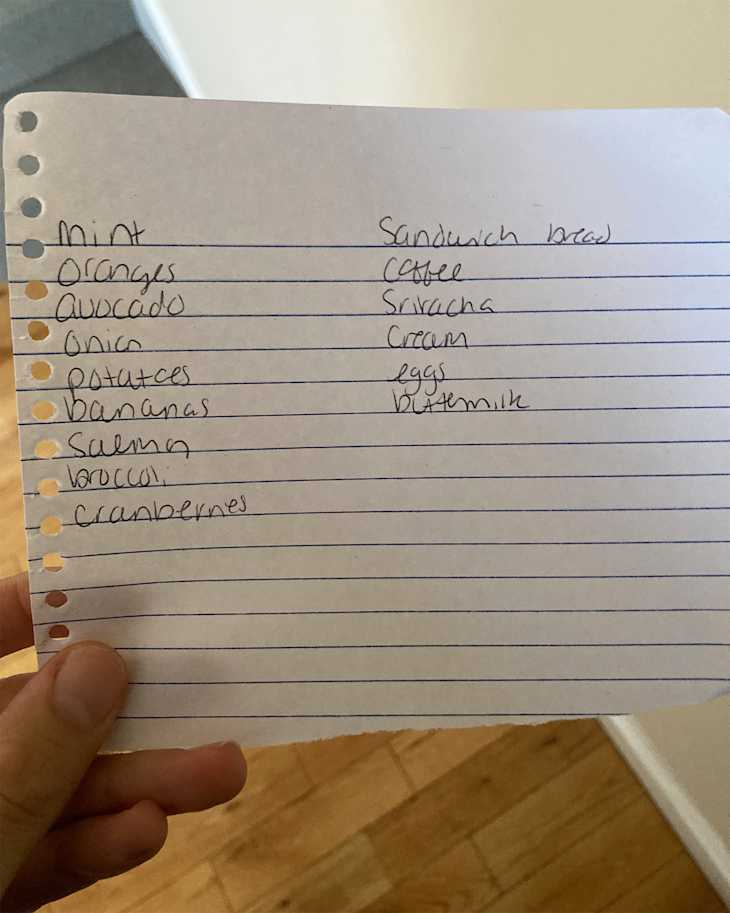 mint
oranges
avocado
onion
potatoes
bananas
salmon
broccoli
cranberries
Sandwich bread
coffee
Sriracha
Cream
eggs
buttemilk